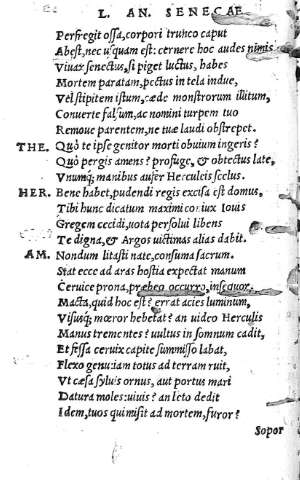 L. AN. SENECAE
Perfregit ossa, corpori trunco caput
Abest, nec usquam est: cernere hoc audes nimis
Viuax senectus, si piget luctus, habes
Mortem paratam, pectus in tela indue,
Vel stipitem istum, cæde monstrorum illitum,
Conuerte falsum, ac nomini turpem tuo
Remoue parentem, ne tuæ laudi obstrepet.
THE. Quò te ipse genitor morti obuium ingeris?
Quo pergis amens? profuge, & obtectus late,
Vnumq; manibus aufer Herculeis scelus.
HER. Bene habet, pudendi regis excisa est domus,
Tibi hunc dicatum maximi coniux Iouis
Gregem cecidi, uota persolui libens
Te digna, & Argos uictimas alias dabit.
AM. Nondum litasti nate, consuma sacrum.
Stat ecce ad aras hostia expectat manum
Ceruice prona, præbeo occurro, insequor.
Macta, quid hoc est? errat acies luminum,
Visusq; mœror hebetat? an uideo Herculis
Manus trementes? uultus in somnum cadit,
Et fessa ceruix capite summisso labat,
Flexo genu iam totus ad terram ruit,
Vt cæsa syluis ornus, aut portus mari
Datura moles: uiuis? an leto dedit
Idem, tuos qui misit ad mortem, furor?
Sopor